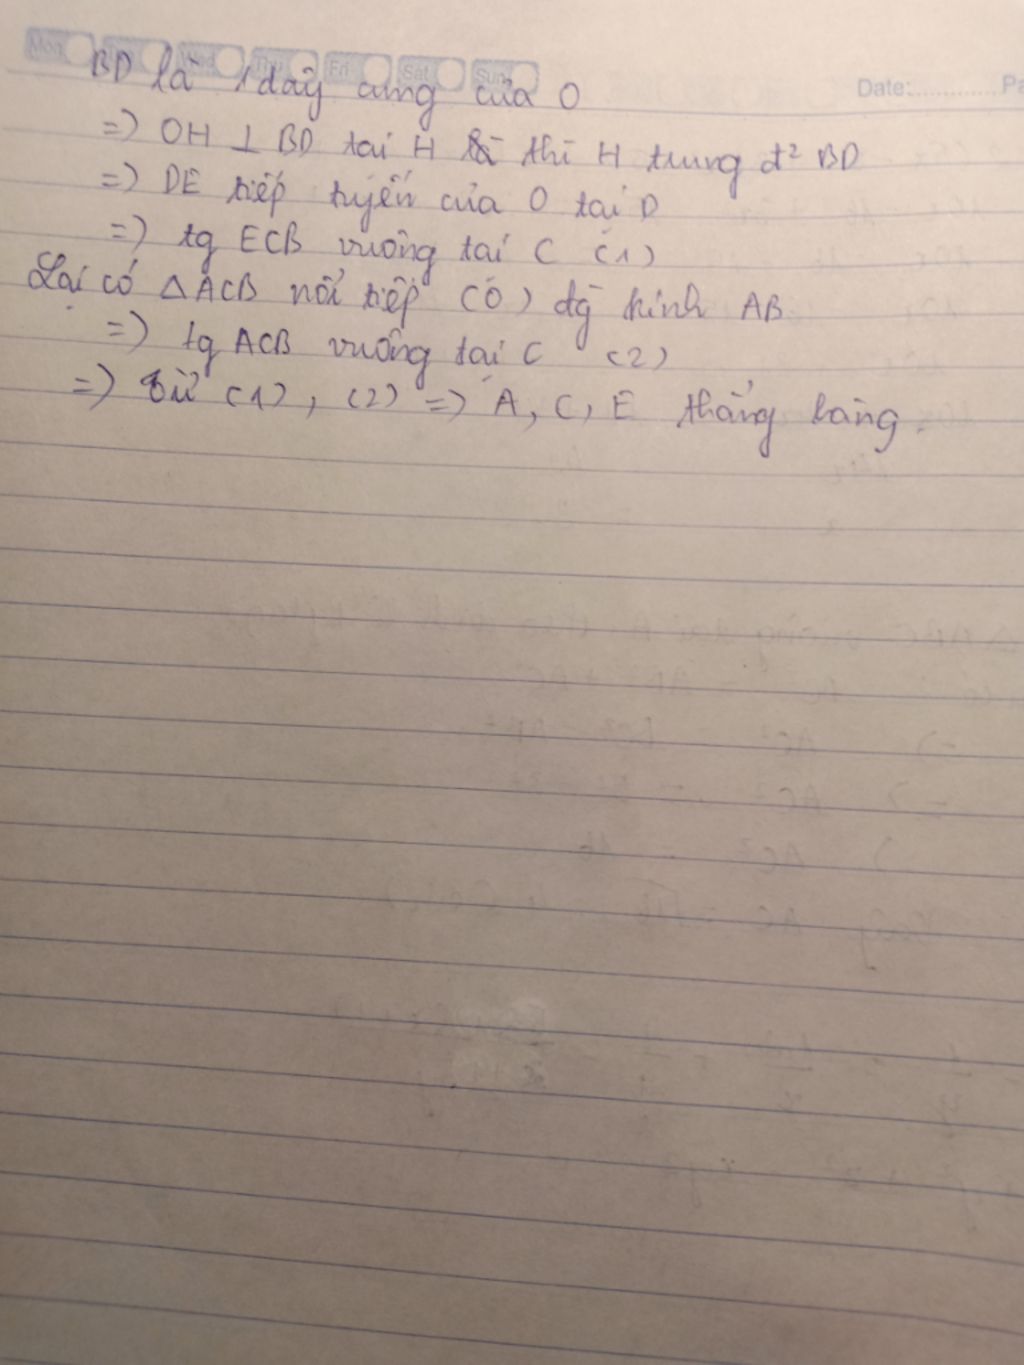 Mon Wed Thu Fri Sat Sun
Date:............. Pa
BD là 1 dây cung của O
=) OH ⊥ BD tại H thì H trung đ² BD
=) DE tiếp tuyến của O tại D
=) tg ECB vuông tại C (1)
Lại có △ACB nội tiếp (O) đg kính AB
=) tg ACB vuông tại C (2)
=) từ (1), (2) =) A, C, E thẳng hàng.